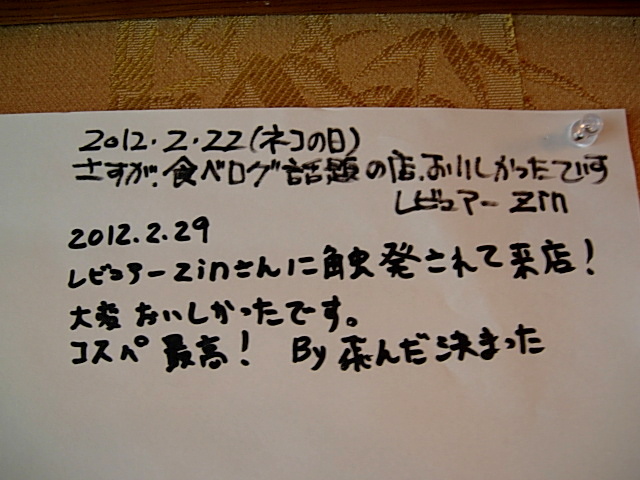 2012.2.22(ネコの日)
さすが、食べログ話題の店、おいしかったです
レビュアー Zin
2012.2.29
レビュアーZinさんに触発されて来店!
大変おいしかったです。
コスパ 最高! By 飛んだ決まった